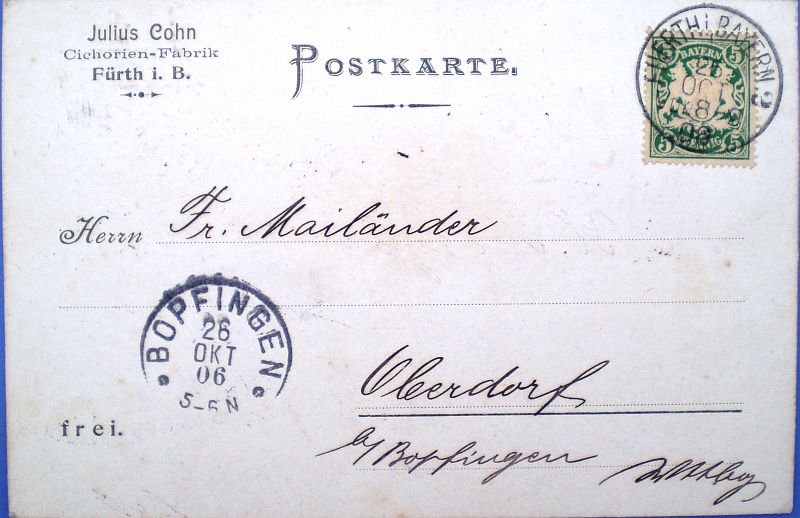 Julius Cohn
Cichorien-Fabrik
Fürth i. B.
POSTKARTE.
FUERTH i BAYERN 2
BAYERN
26
OKT
06
5 5
Herrn Fr. Mailänder
BOPFINGEN
26
OKT
06
5-6 N
Oberdorf
frei.
b/Bopfingen
Wttbg